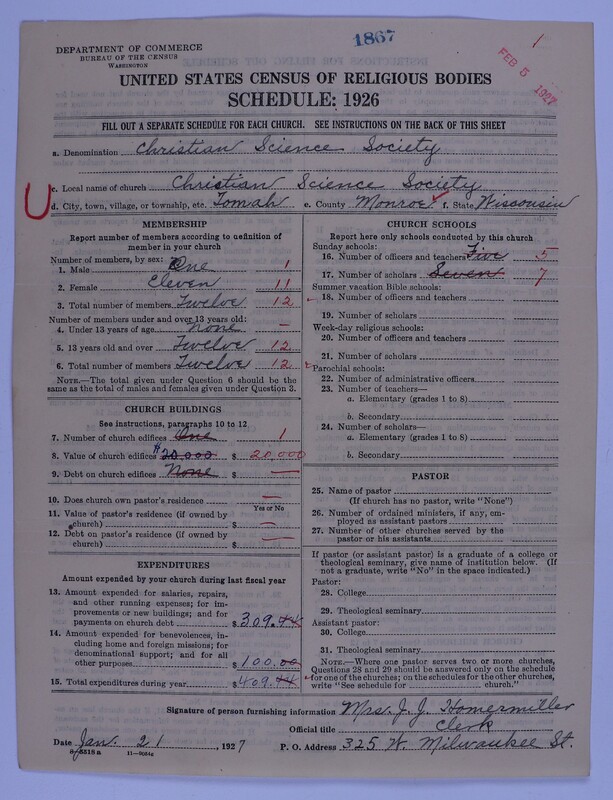 1867
1
FEB 5 1927
DEPARTMENT OF COMMERCE
BUREAU OF THE CENSUS
WASHINGTON
UNITED STATES CENSUS OF RELIGIOUS BODIES
SCHEDULE: 1926
FILL OUT A SEPARATE SCHEDULE FOR EACH CHURCH. SEE INSTRUCTIONS ON THE BACK OF THIS SHEET
a. Denomination Christian Science Society
c. Local name of church Christian Science Society
d. City, town, village, or township, etc. Tomah e. County Monroe f. State Wisconsin
MEMBERSHIP
Report number of members according to definition of
member in your church
Number of members, by sex:
1. Male One 1
2. Female Eleven 11
3. Total number of members Twelve 12
Number of members under and over 13 years old:
4. Under 13 years of age None —
5. 13 years old and over Twelve 12
6. Total number of members Twelve 12
NOTE.—The total given under Question 6 should be the
same as the total of males and females given under Question 3.
CHURCH BUILDINGS
See instructions, paragraphs 10 to 12
7. Number of church edifices One 1
8. Value of church edifices $20,000 $ 20,000
9. Debt on church edifices None $ —
10. Does church own pastor's residence —
Yes or No
11. Value of pastor's residence (if owned by
church) $ —
12. Debt on pastor's residence (if owned by
church) $ —
EXPENDITURES
Amount expended by your church during last fiscal year
13. Amount expended for salaries, repairs,
and other running expenses; for im-
provements or new buildings; and for
payments on church debt $ 309.44
14. Amount expended for benevolences, in-
cluding home and foreign missions; for
denominational support; and for all
other purposes $ 100.00
15. Total expenditures during year $ 409.44
CHURCH SCHOOLS
Report here only schools conducted by this church
Sunday schools:
16. Number of officers and teachers Five 5
17. Number of scholars Seven 7
Summer vacation Bible schools:
18. Number of officers and teachers
19. Number of scholars
Week-day religious schools:
20. Number of officers and teachers
21. Number of scholars
Parochial schools:
22. Number of administrative officers
23. Number of teachers—
a. Elementary (grades 1 to 8)
b. Secondary
24. Number of scholars—
a. Elementary (grades 1 to 8)
b. Secondary
PASTOR
25. Name of pastor
(If church has no pastor, write "None")
26. Number of ordained ministers, if any, em-
ployed as assistant pastors
27. Number of other churches served by the
pastor or his assistants
If pastor (or assistant pastor) is a graduate of a college or
theological seminary, give name of institution below. (If
not a graduate, write "No" in the space indicated.)
Pastor:
28. College
29. Theological seminary
Assistant pastor:
30. College
31. Theological seminary
NOTE.—Where one pastor serves two or more churches,
Questions 28 and 29 should be answered only on the schedule
for one of the churches; on the schedules for the other churches,
write "See schedule for church."
Signature of person furnishing information Mrs. J. J. Homermiller
Official title Clerk
Date Jan. 21, 1927 P. O. Address 325 W. Milwaukee St.